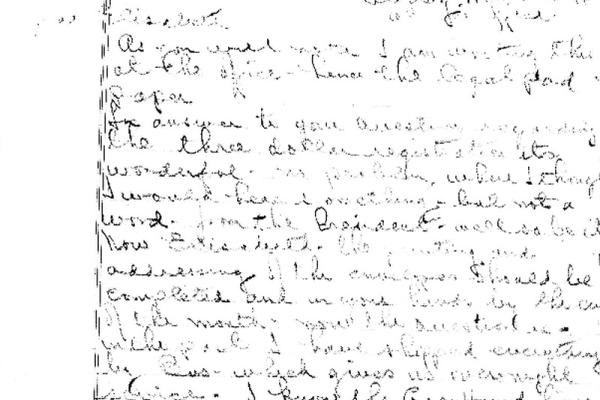 Elisabeth
As you will note I am writing this
at the office - hence the legal pad
Paper
In answer to your question regarding
the three dollar registration its
wonderful - no problem, where I though
I would hear something - but not a
word - from the President - well so be it
Now Elisabeth - the printing and
addressing of the envelopes should be
completed and in your hands by the en
of the month - now the question is -
in the past I have shipped everything
by Bus - which gives us overnight
service - I know the Greyhound